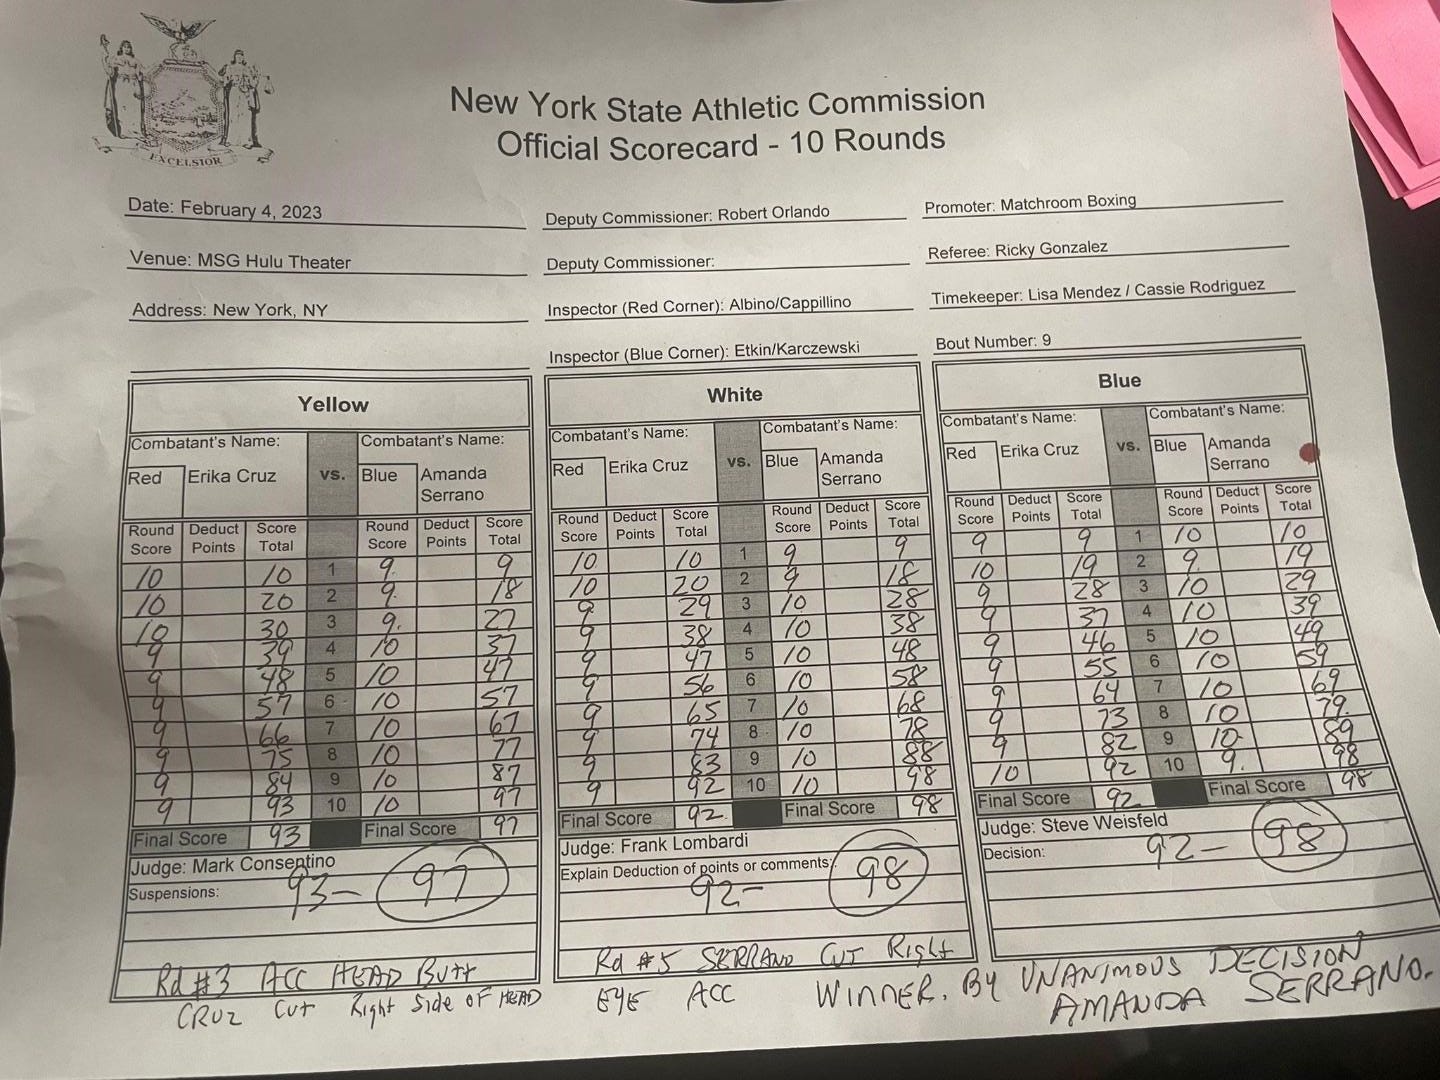 EXCELSIOR
New York State Athletic Commission
Official Scorecard - 10 Rounds
Date: February 4, 2023
Deputy Commissioner: Robert Orlando
Promoter: Matchroom Boxing
Venue: MSG Hulu Theater
Deputy Commissioner:
Referee: Ricky Gonzalez
Address: New York, NY
Inspector (Red Corner): Albino/Cappillino
Timekeeper: Lisa Mendez / Cassie Rodriguez
Inspector (Blue Corner): Etkin/Karczewski
Bout Number: 9
Yellow
Combatant's Name: vs. Combatant's Name:
Red Erika Cruz Blue Amanda Serrano
Round Score Deduct Points Score Total Round Score Deduct Points Score Total
10 10 1 9. 9
10 20 2 9. 18
10 30 3 9. 27
9 39 4 10 37
9 48 5 10 47
9 57 6 10 57
9 66 7 10 67
9 75 8 10 77
9 84 9 10 87
9 93 10 10 97
Final Score 93 Final Score 97
Judge: Mark Consentino
Suspensions: 93- 97
Rd #3 ACC HEAD BUTT
CRUZ CUT Right Side OF HEAD
White
Combatant's Name: vs. Combatant's Name:
Red Erika Cruz Blue Amanda Serrano
Round Score Deduct Points Score Total Round Score Deduct Points Score Total
10 10 1 9 9
10 20 2 9 18
9 29 3 10 28
9 38 4 10 38
9 47 5 10 48
9 56 6 10 58
9 65 7 10 68
9 74 8 10 78
9 83 9 10 88
9 92 10 10 98
Final Score 92. Final Score 98
Judge: Frank Lombardi
Explain Deduction of points or comments:
92- 98
Rd #5 SERRANO CUT Right
EYE ACC
Blue
Combatant's Name: vs. Combatant's Name:
Red Erika Cruz Blue Amanda Serrano
Round Score Deduct Points Score Total Round Score Deduct Points Score Total
9 9 1 10 10
10 19 2 9. 19
9 28 3 10 29
9 37 4 10 39
9 46 5 10 49
9 55 6 10 59
9 64 7 10 69
9 73 8 10 79.
9 82 9 10 89
10 92 10 9. 98
Final Score 92 Final Score 98
Judge: Steve Weisfeld
Decision: 92- 98
WINNER. BY UNANIMOUS DECISION
AMANDA SERRANO.